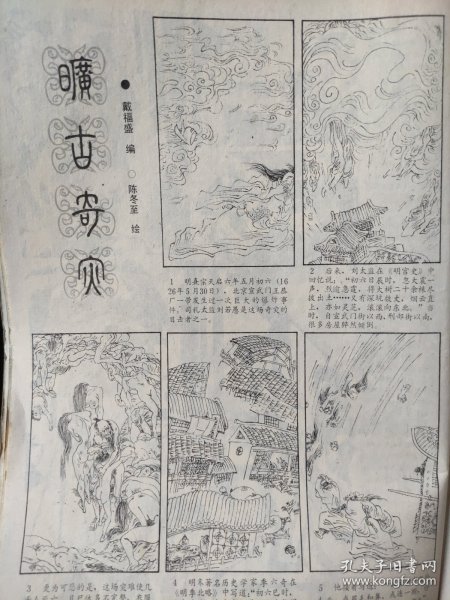 旷古奇灾
● 戴福盛 编 ○ 陈冬至 绘
1 明熹宗天启六年五月初六（16
26年5月30日），北京宣武门王恭
厂一带发生过一次巨大的爆炸事
件。司礼太监刘若愚是这场奇灾的
目击者之一。
2 后来，刘太监在《明宫史》中
回忆说：“初六日辰时，忽大震一
声，烈逾急霆，将大树二十余株尽
拔出土……又有深坑数丈，烟云直
上，亦如灵芝，滚滚向东北。”当
时，自宣武门街以南，刑部街以南，
很多房屋猝然倾倒。
3 更为可怒的是，这场灾难使几
4 明末著名历史学家季六奇在
《明季北略》中写道：“初六巳时，
5 他接着写
孔夫子旧书网